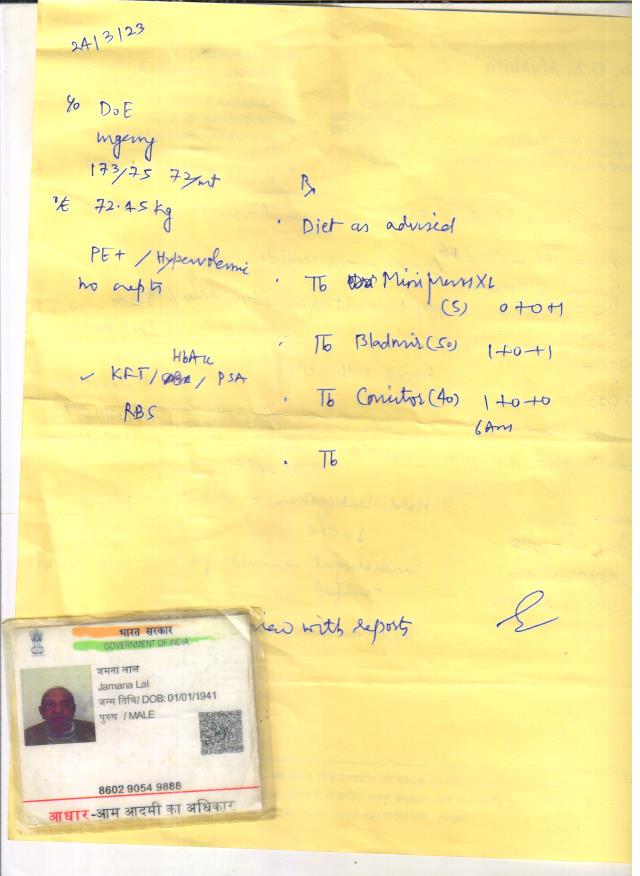 24/3/23
c/o DOE
173/75 72/mt
o/E 72.45 kg
PE+ / Hypervolemic
no crepts
HbA1c
✓ KFT/ / PSA
RBS
Rx
· Diet as advised
· Tb Minipress XL
(5) 0+0+1
· Tb Bladmir (50) 1+0+1
· Tb (40) 1+0+0
6 Am
· Tb
with reports
भारत सरकार
GOVERNMENT OF INDIA
जमना लाल
Jamana Lal
जन्म तिथि/ DOB: 01/01/1941
पुरुष / MALE
8602 9054 9888
आधार-आम आदमी का अधिकार